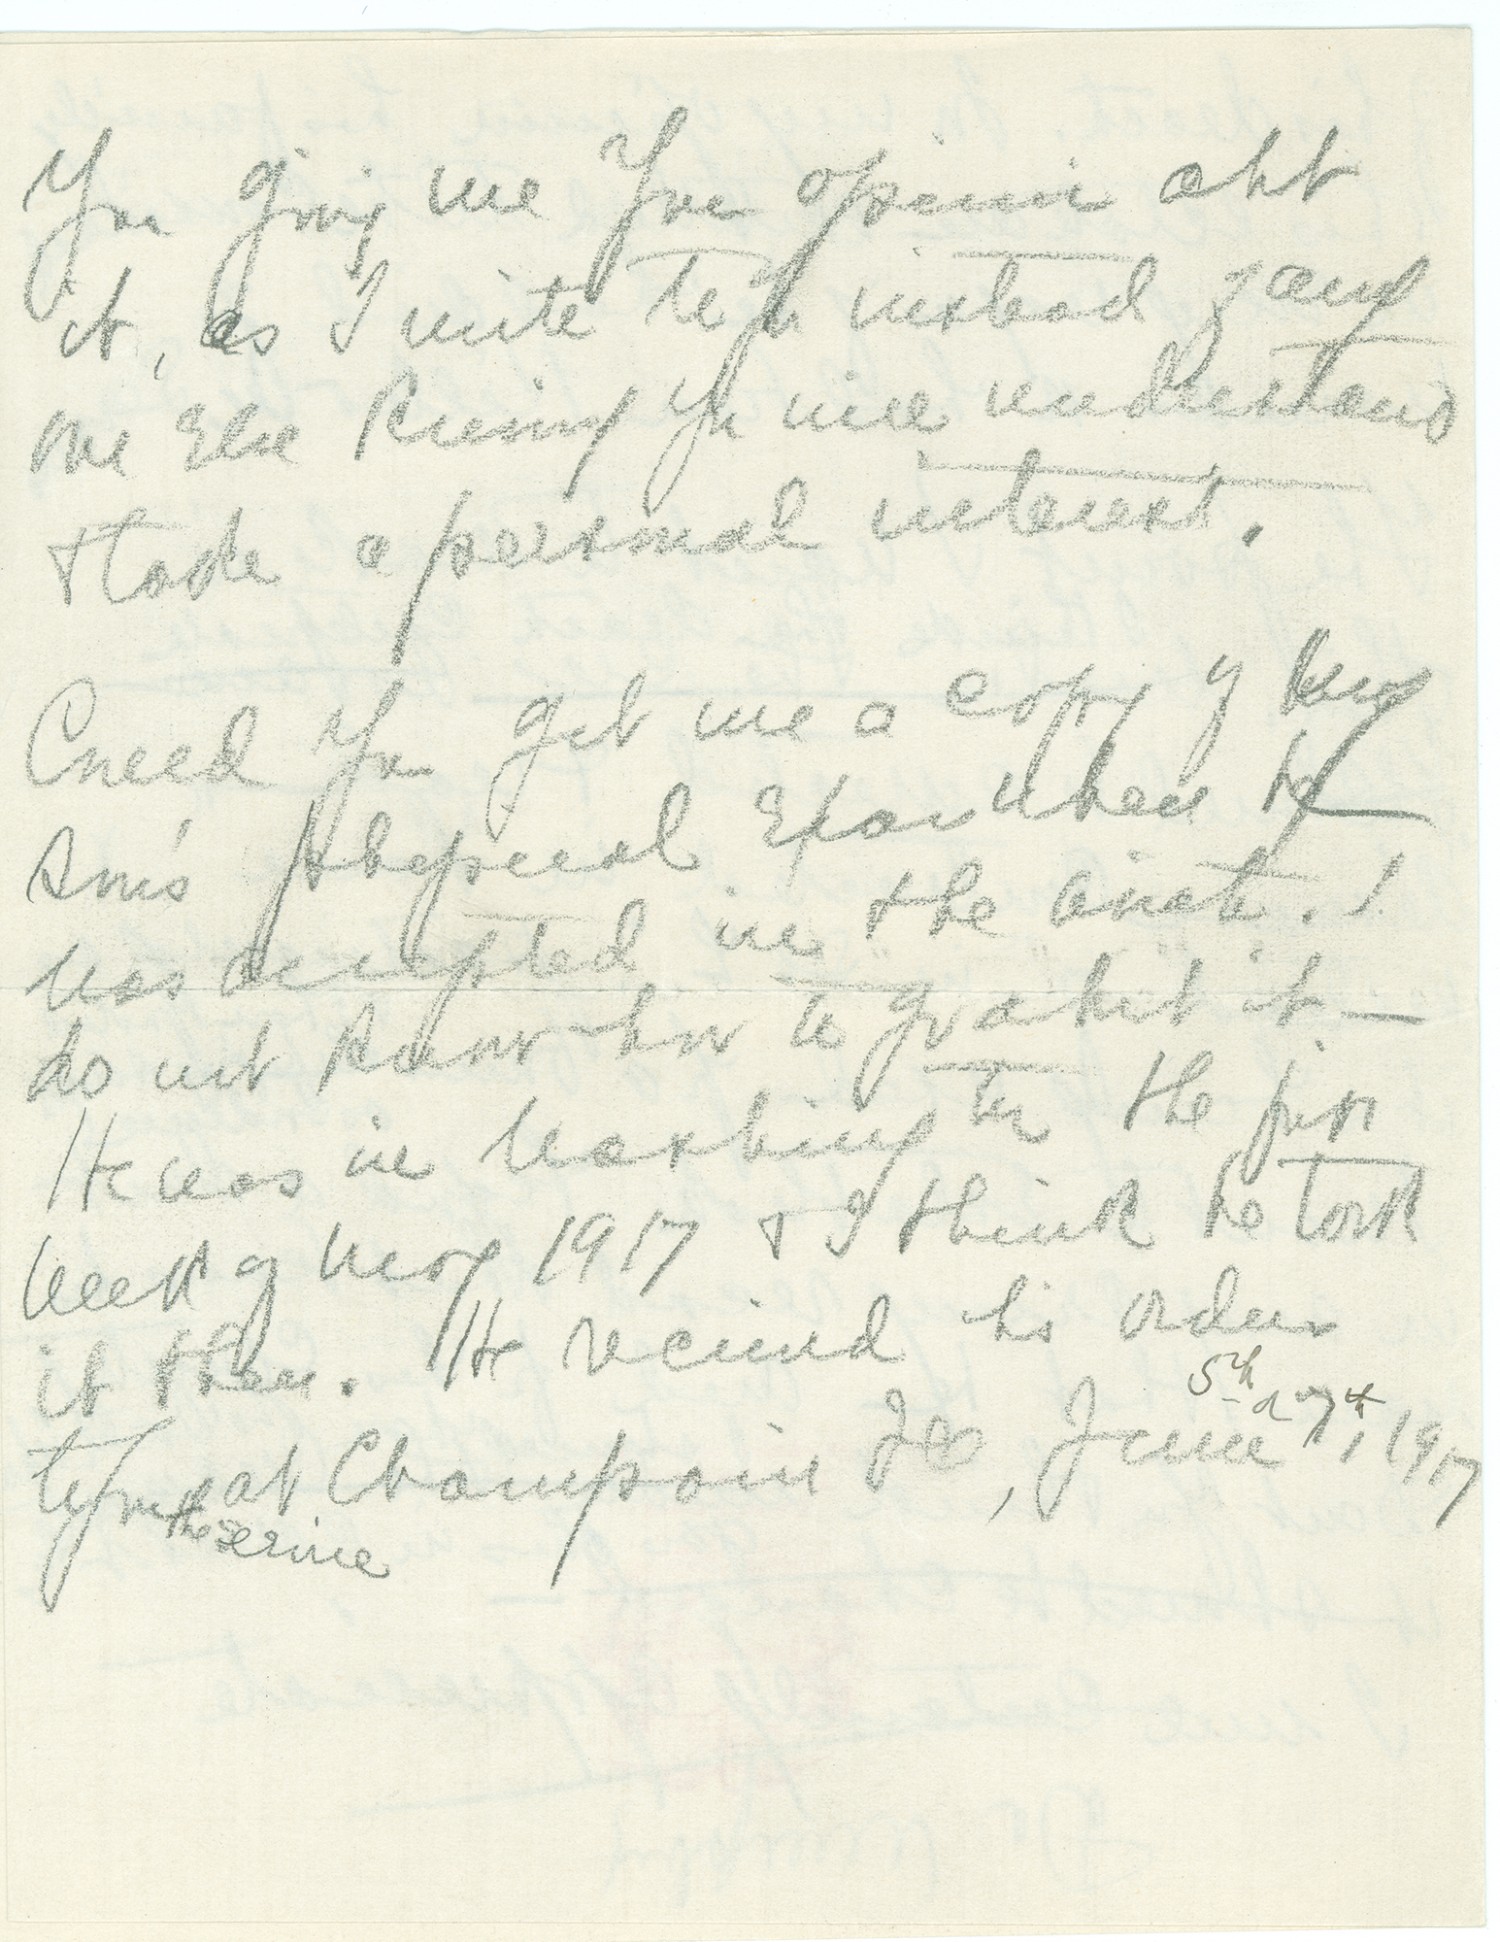 You giving me your opinion abt
it, as I write to you instead of any
one else knowing you will understand
& take a personal interest.
Could you get me a copy of my
Son's physical Exam when he
was accepted in the aviatn. I
do not know how to go abt it —
He was in Washington the first
week of May 1917 & I think he took
it then. He received his orders
to fr at Champaign Ill, June 5th or 7th, 1917
the service